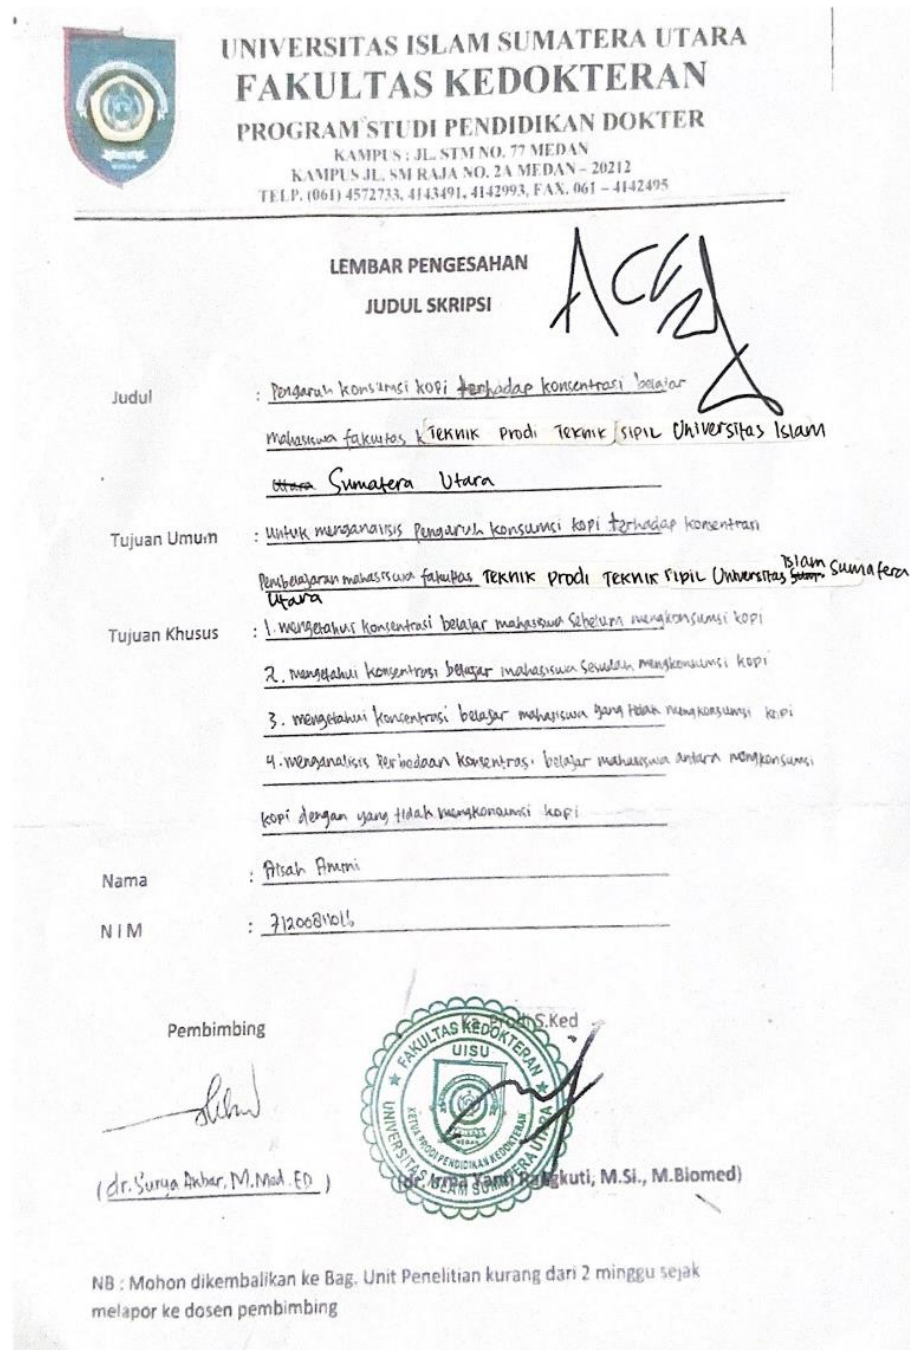 UNIVERSITAS ISLAM SUMATERA UTARA
FAKULTAS KEDOKTERAN
PROGRAM STUDI PENDIDIKAN DOKTER
KAMPUS : JL. STM NO. 77 MEDAN
KAMPUS JL. SM RAJA NO. 2A MEDAN – 20212
TELP. (061) 4572733, 4143491, 4142993, FAX. 061 – 4142495
LEMBAR PENGESAHAN
JUDUL SKRIPSI
ACC
Judul : Pengaruh konsumsi kopi terhadap konsentrasi belajar
mahasiswa fakultas TEKNIK Prodi TEKNIK SIPIL Universitas Islam
Sumatera Utara
Tujuan Umum : Untuk menganalisis Pengaruh konsumsi kopi terhadap konsentrasi
Pembelajaran mahasiswa fakultas TEKNIK Prodi TEKNIK SIPIL Universitas Islam Sumatera
Utara
Tujuan Khusus : 1. mengetahui konsentrasi belajar mahasiswa sebelum mengkonsumsi kopi
2. mengetahui konsentrasi belajar mahasiswa sesudah mengkonsumsi kopi
3. mengetahui konsentrasi belajar mahasiswa yang tidak mengkonsumsi kopi
4. menganalisis Perbedaan konsentrasi belajar mahasiswa antara mengkonsumsi
kopi dengan yang tidak mengkonsumsi kopi
Nama : Aisah Ammi
NIM :
Pembimbing
Ka. Prodi S.Ked
FAKULTAS KEDOKTERAN
UISU
KETUA PRODI PENDIDIKAN KEDOKTERAN
UNIVERSITAS ISLAM SUMATERA UTARA
(dr. Surya Akbar, M.Med.ED)
(dr. Irma Yanti Rangkuti, M.Si., M.Biomed)
NB : Mohon dikembalikan ke Bag. Unit Penelitian kurang dari 2 minggu sejak
melapor ke dosen pembimbing